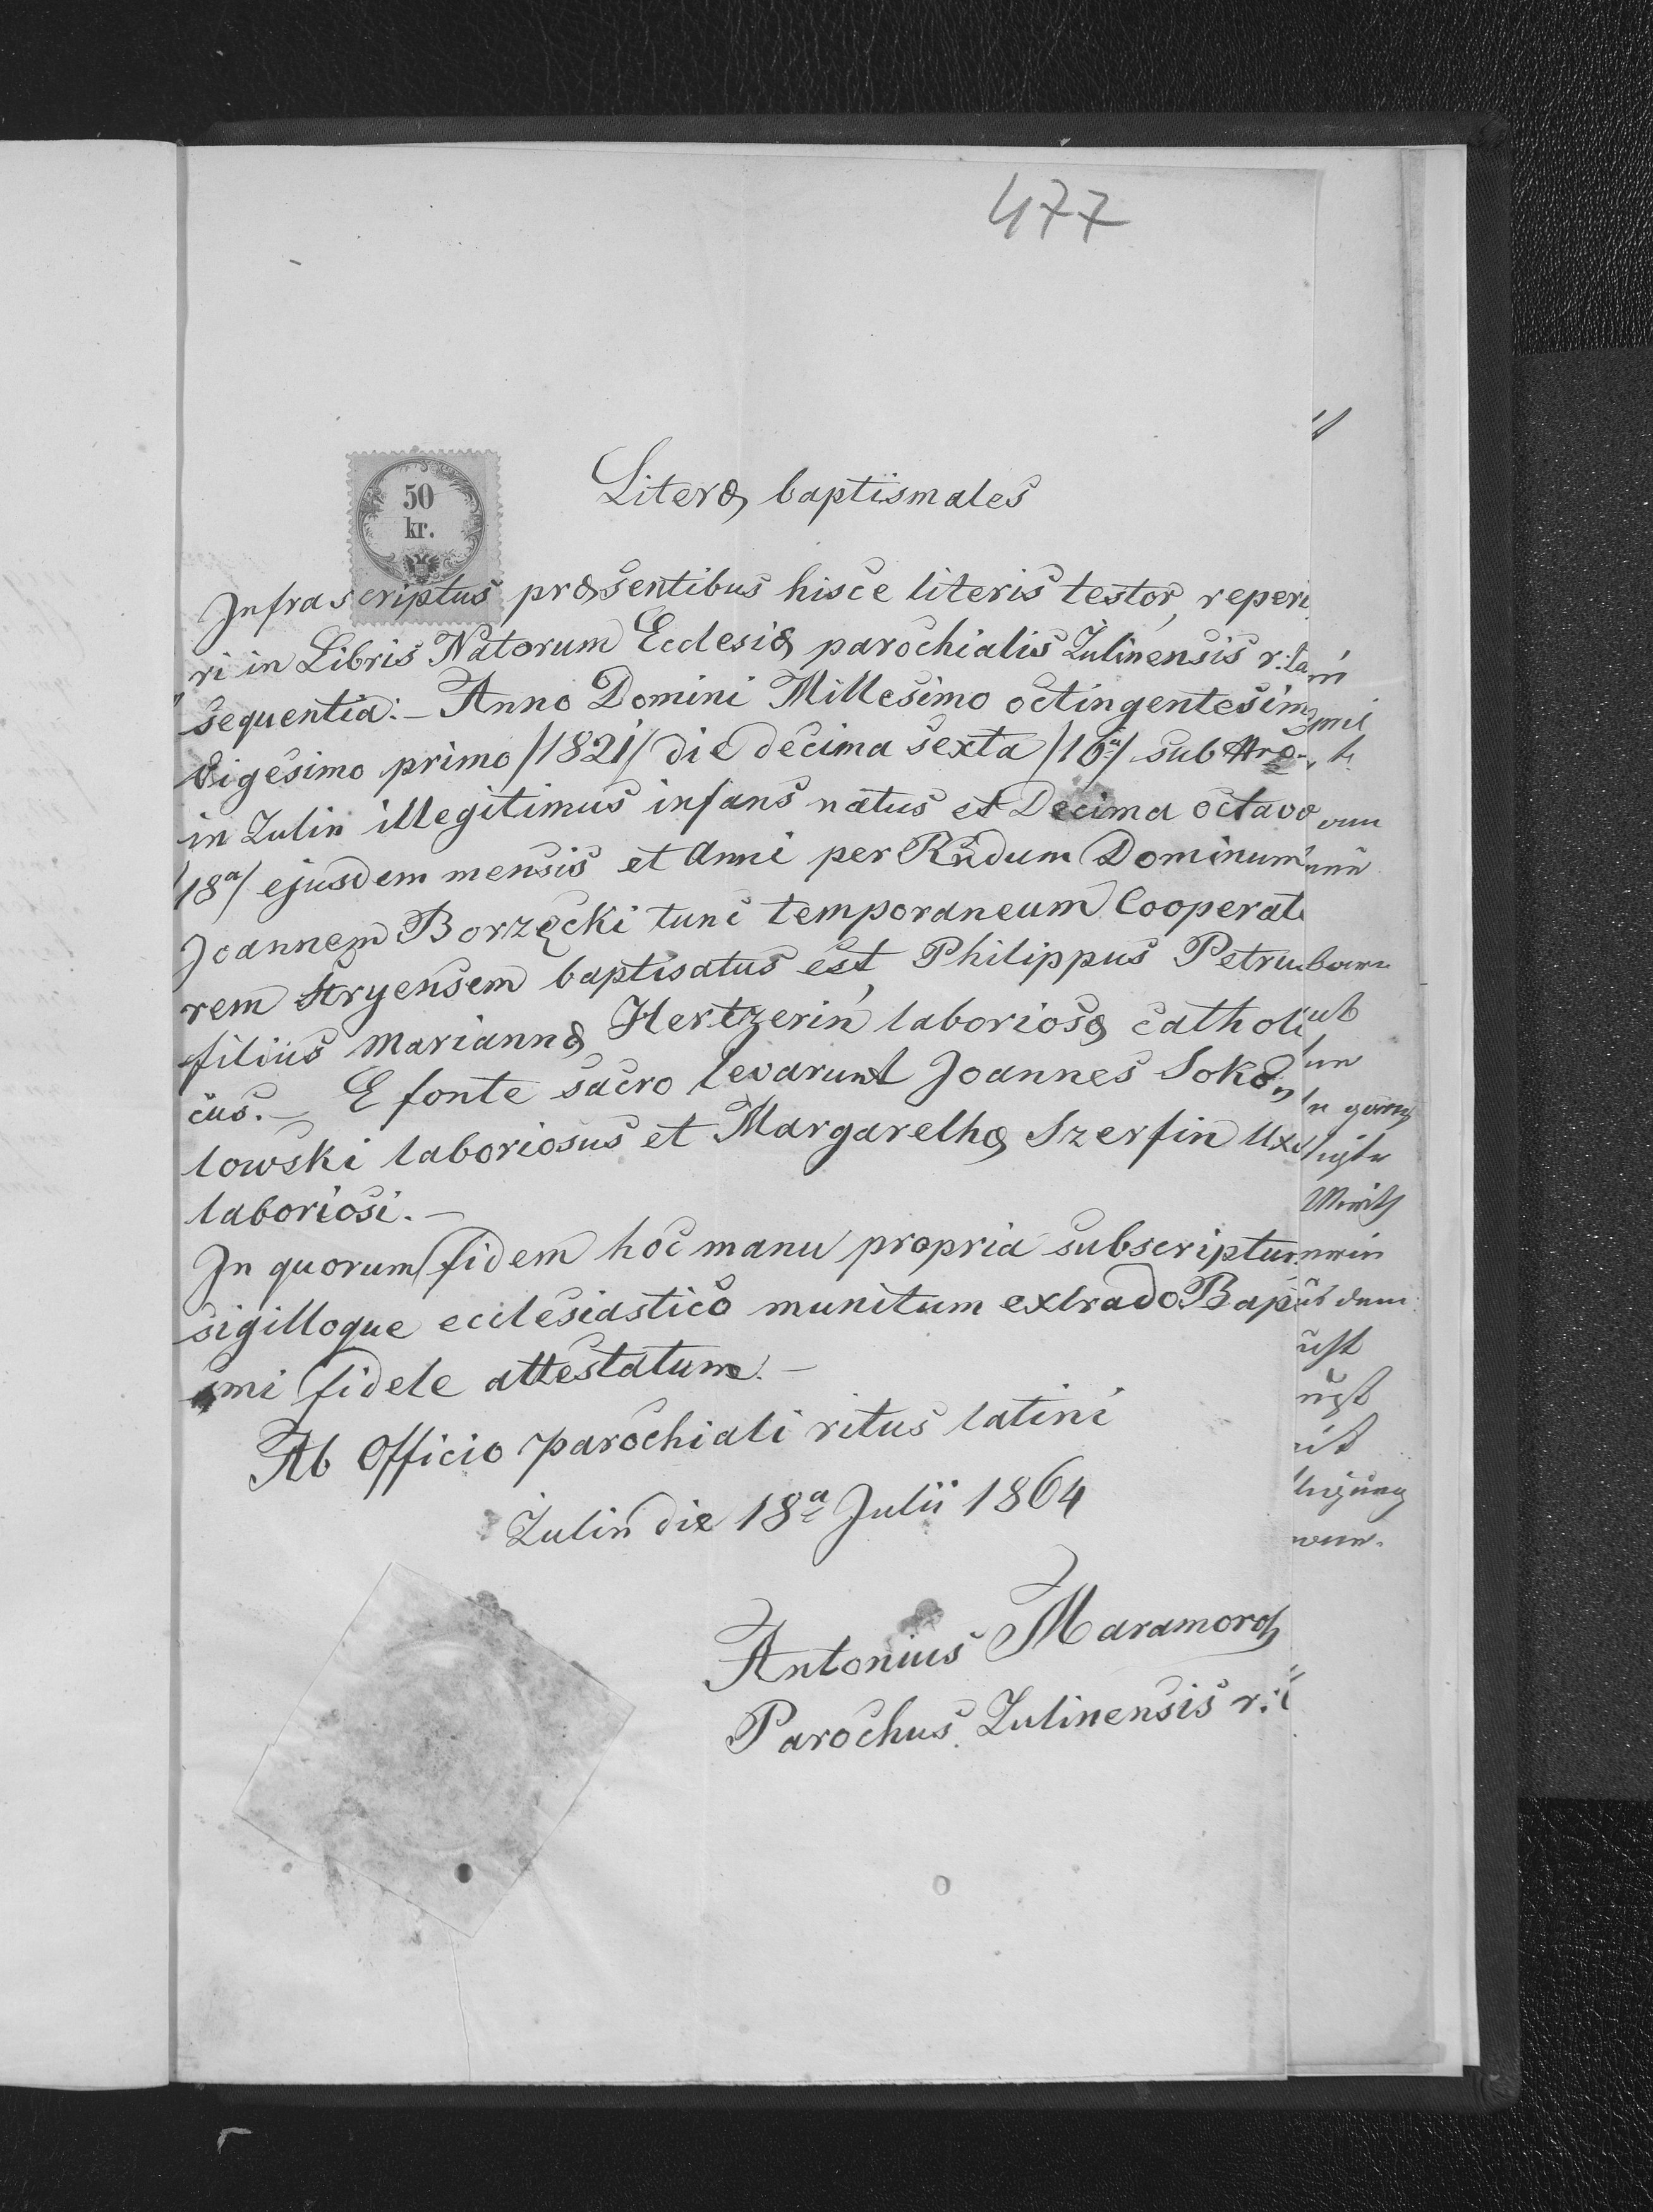 477
50
kr.
Literæ baptismales
Infrascriptus præsentibus hisce literis testor, reperi
ri in Libris Natorum Ecclesiæ parochialis Żulinensis r: la
sequentia: – Anno Domini Millesimo octingentesimo
vigesimo primo /1821/ die decima sexta /16ª/ sub Nro –
in Żulin illegitimus infans natus et Decima octavo
/18ª/ ejusdem mensis et Anni per Rndum Dominum
Joannem Borzęcki tunc temporaneum Cooperato
rem Stryensem baptisatus est, Philippus Petrus
filius Mariannæ Hertzerin laboriosæ catholi
cus. – E fonte sacro levarunt Joannes Soko
lowski laboriosus et Margarethæ Szerfin Uxo
laboriosi. –
In quorum fidem hoc manu propria subscriptum
sigilloque ecclesiastico munitum extrado Bap
smi fidele attestatum. –
Ab Officio parochiali ritus latini
Żulin die 18ª Julii 1864
Antonius Maramorosz
Parochus Żulinensis r: l